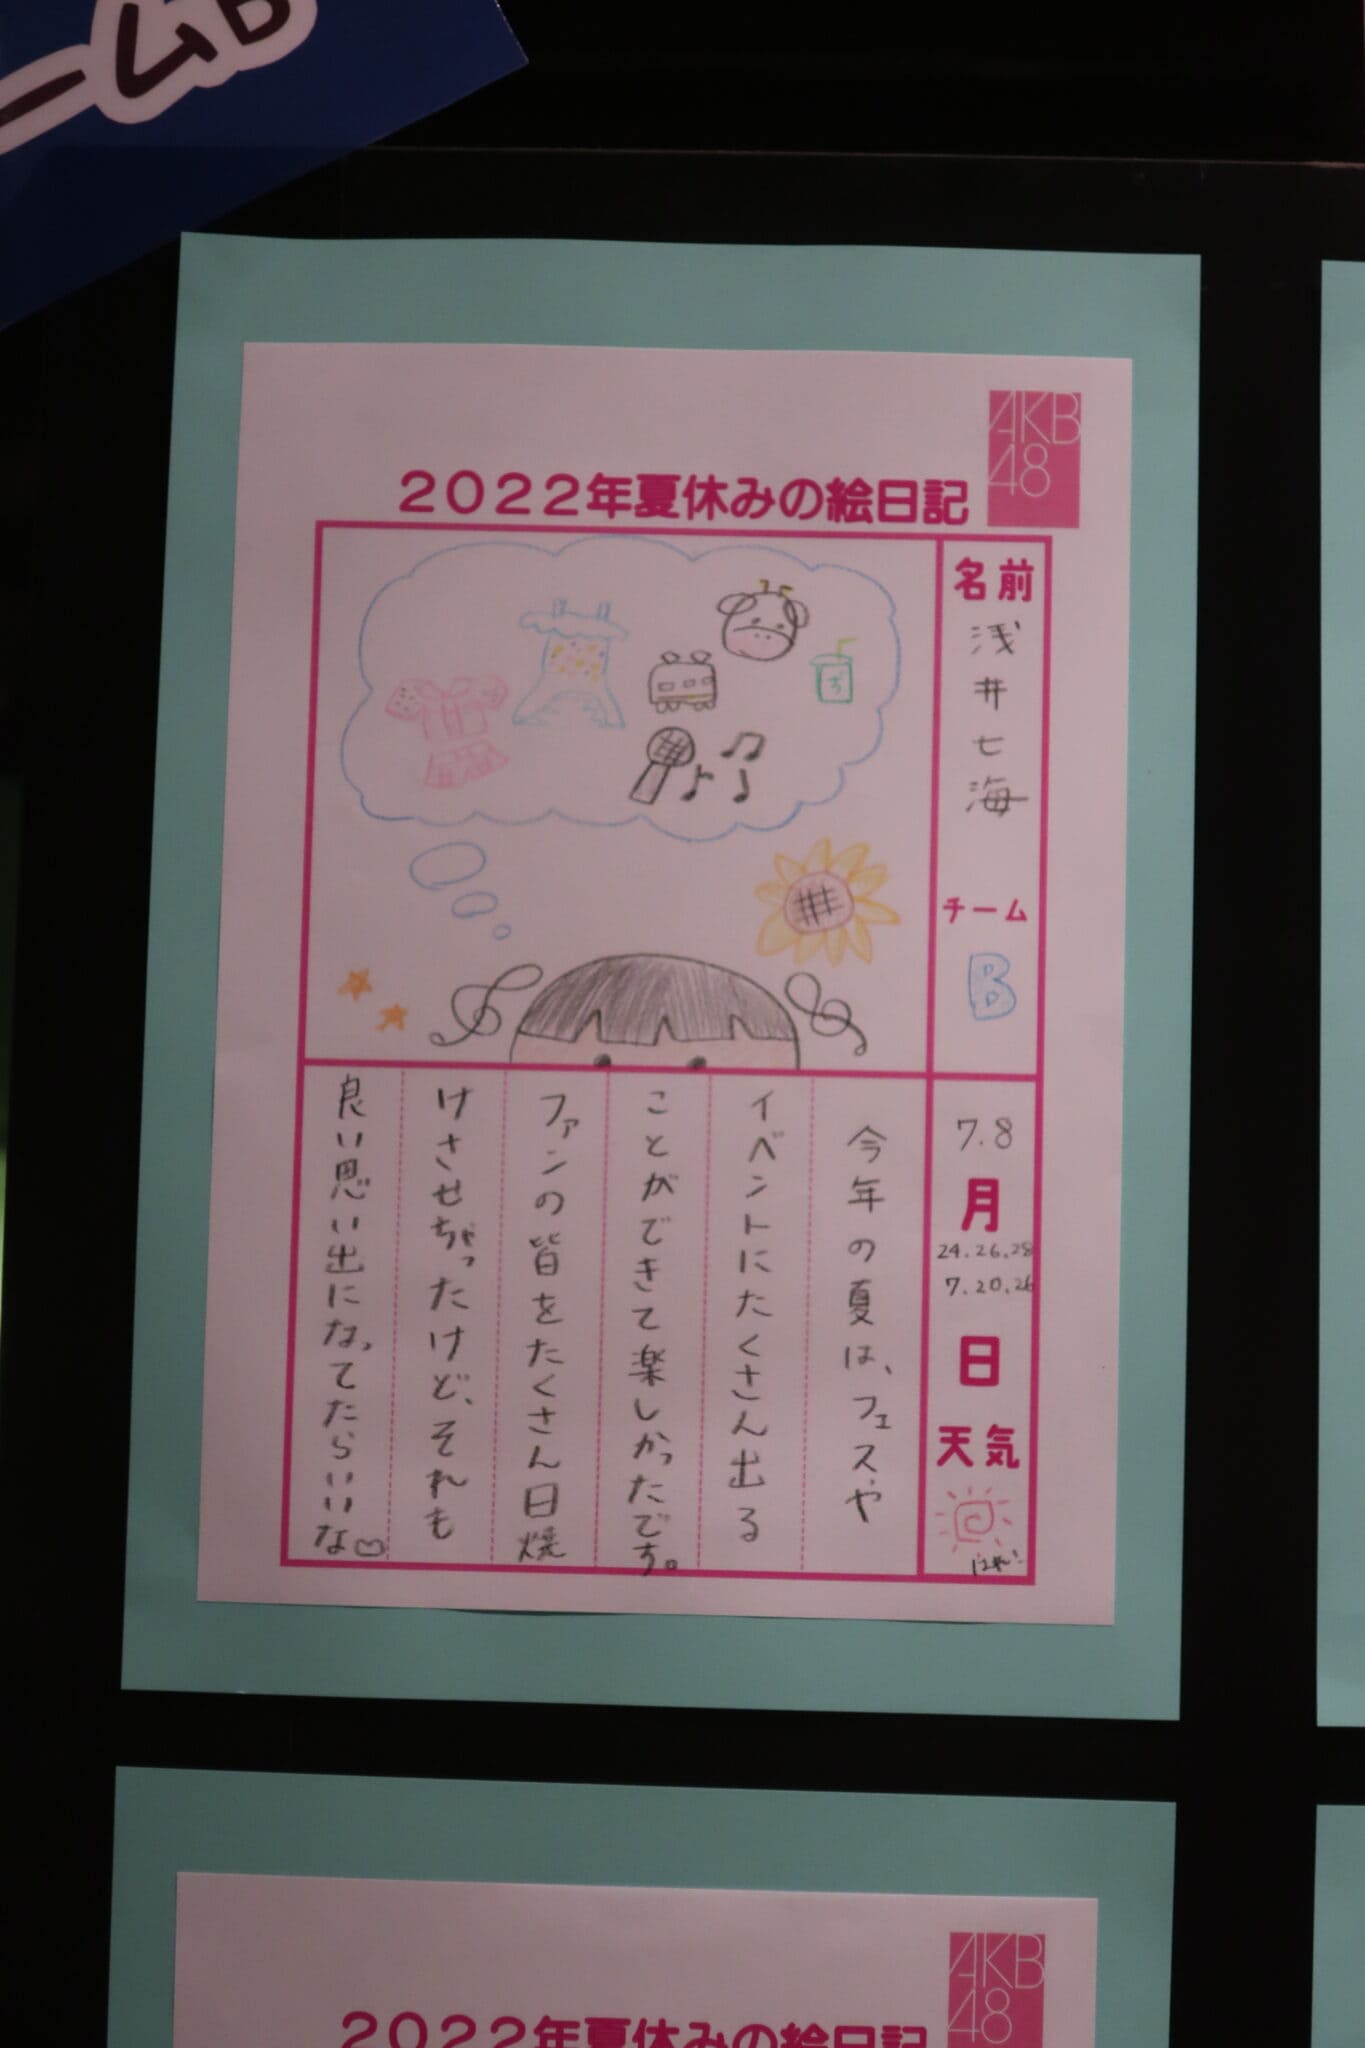 ームB
AKB
48
2022年夏休みの絵日記
名前
浅井七海
チーム
B
7.8
月
24.26.28
7.20.26
日
天気
はれ!
今年の夏は、フェスや
イベントにたくさん出る
ことができて楽しかったです。
ファンの皆をたくさん日焼
けさせちゃったけど、それも
良い思い出になってたらいいな
AKB
48
2022年夏休みの絵日記